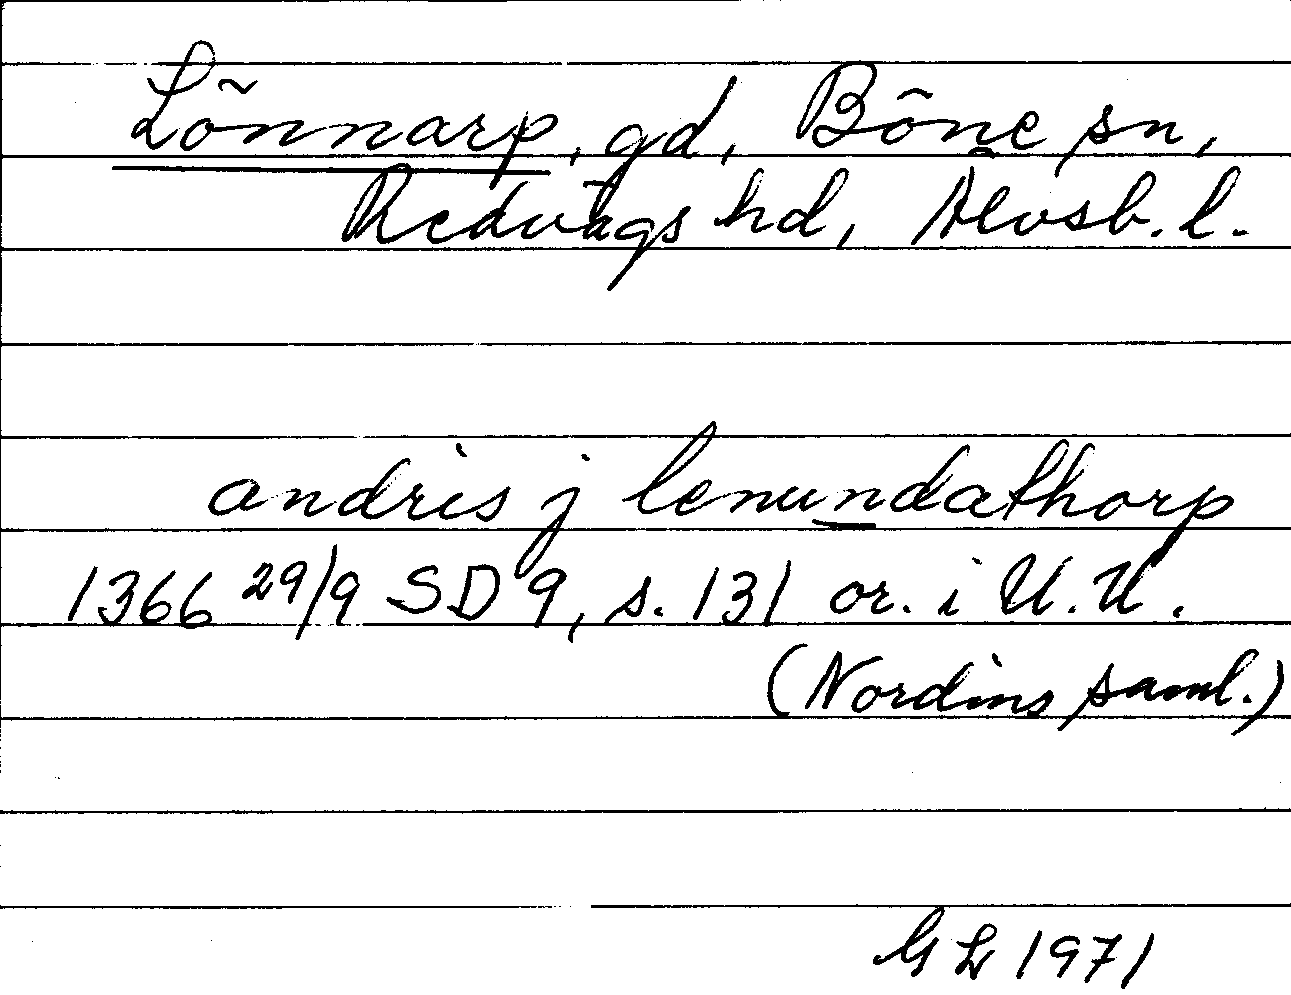 Lönnarp, gd, Böne sn,
Redvägs hd, Älvsb. l.
andris j lenundathorp
1366 29/9 SD 9, s. 131 or. i U.U.
(Nordins saml.)
GL 1971